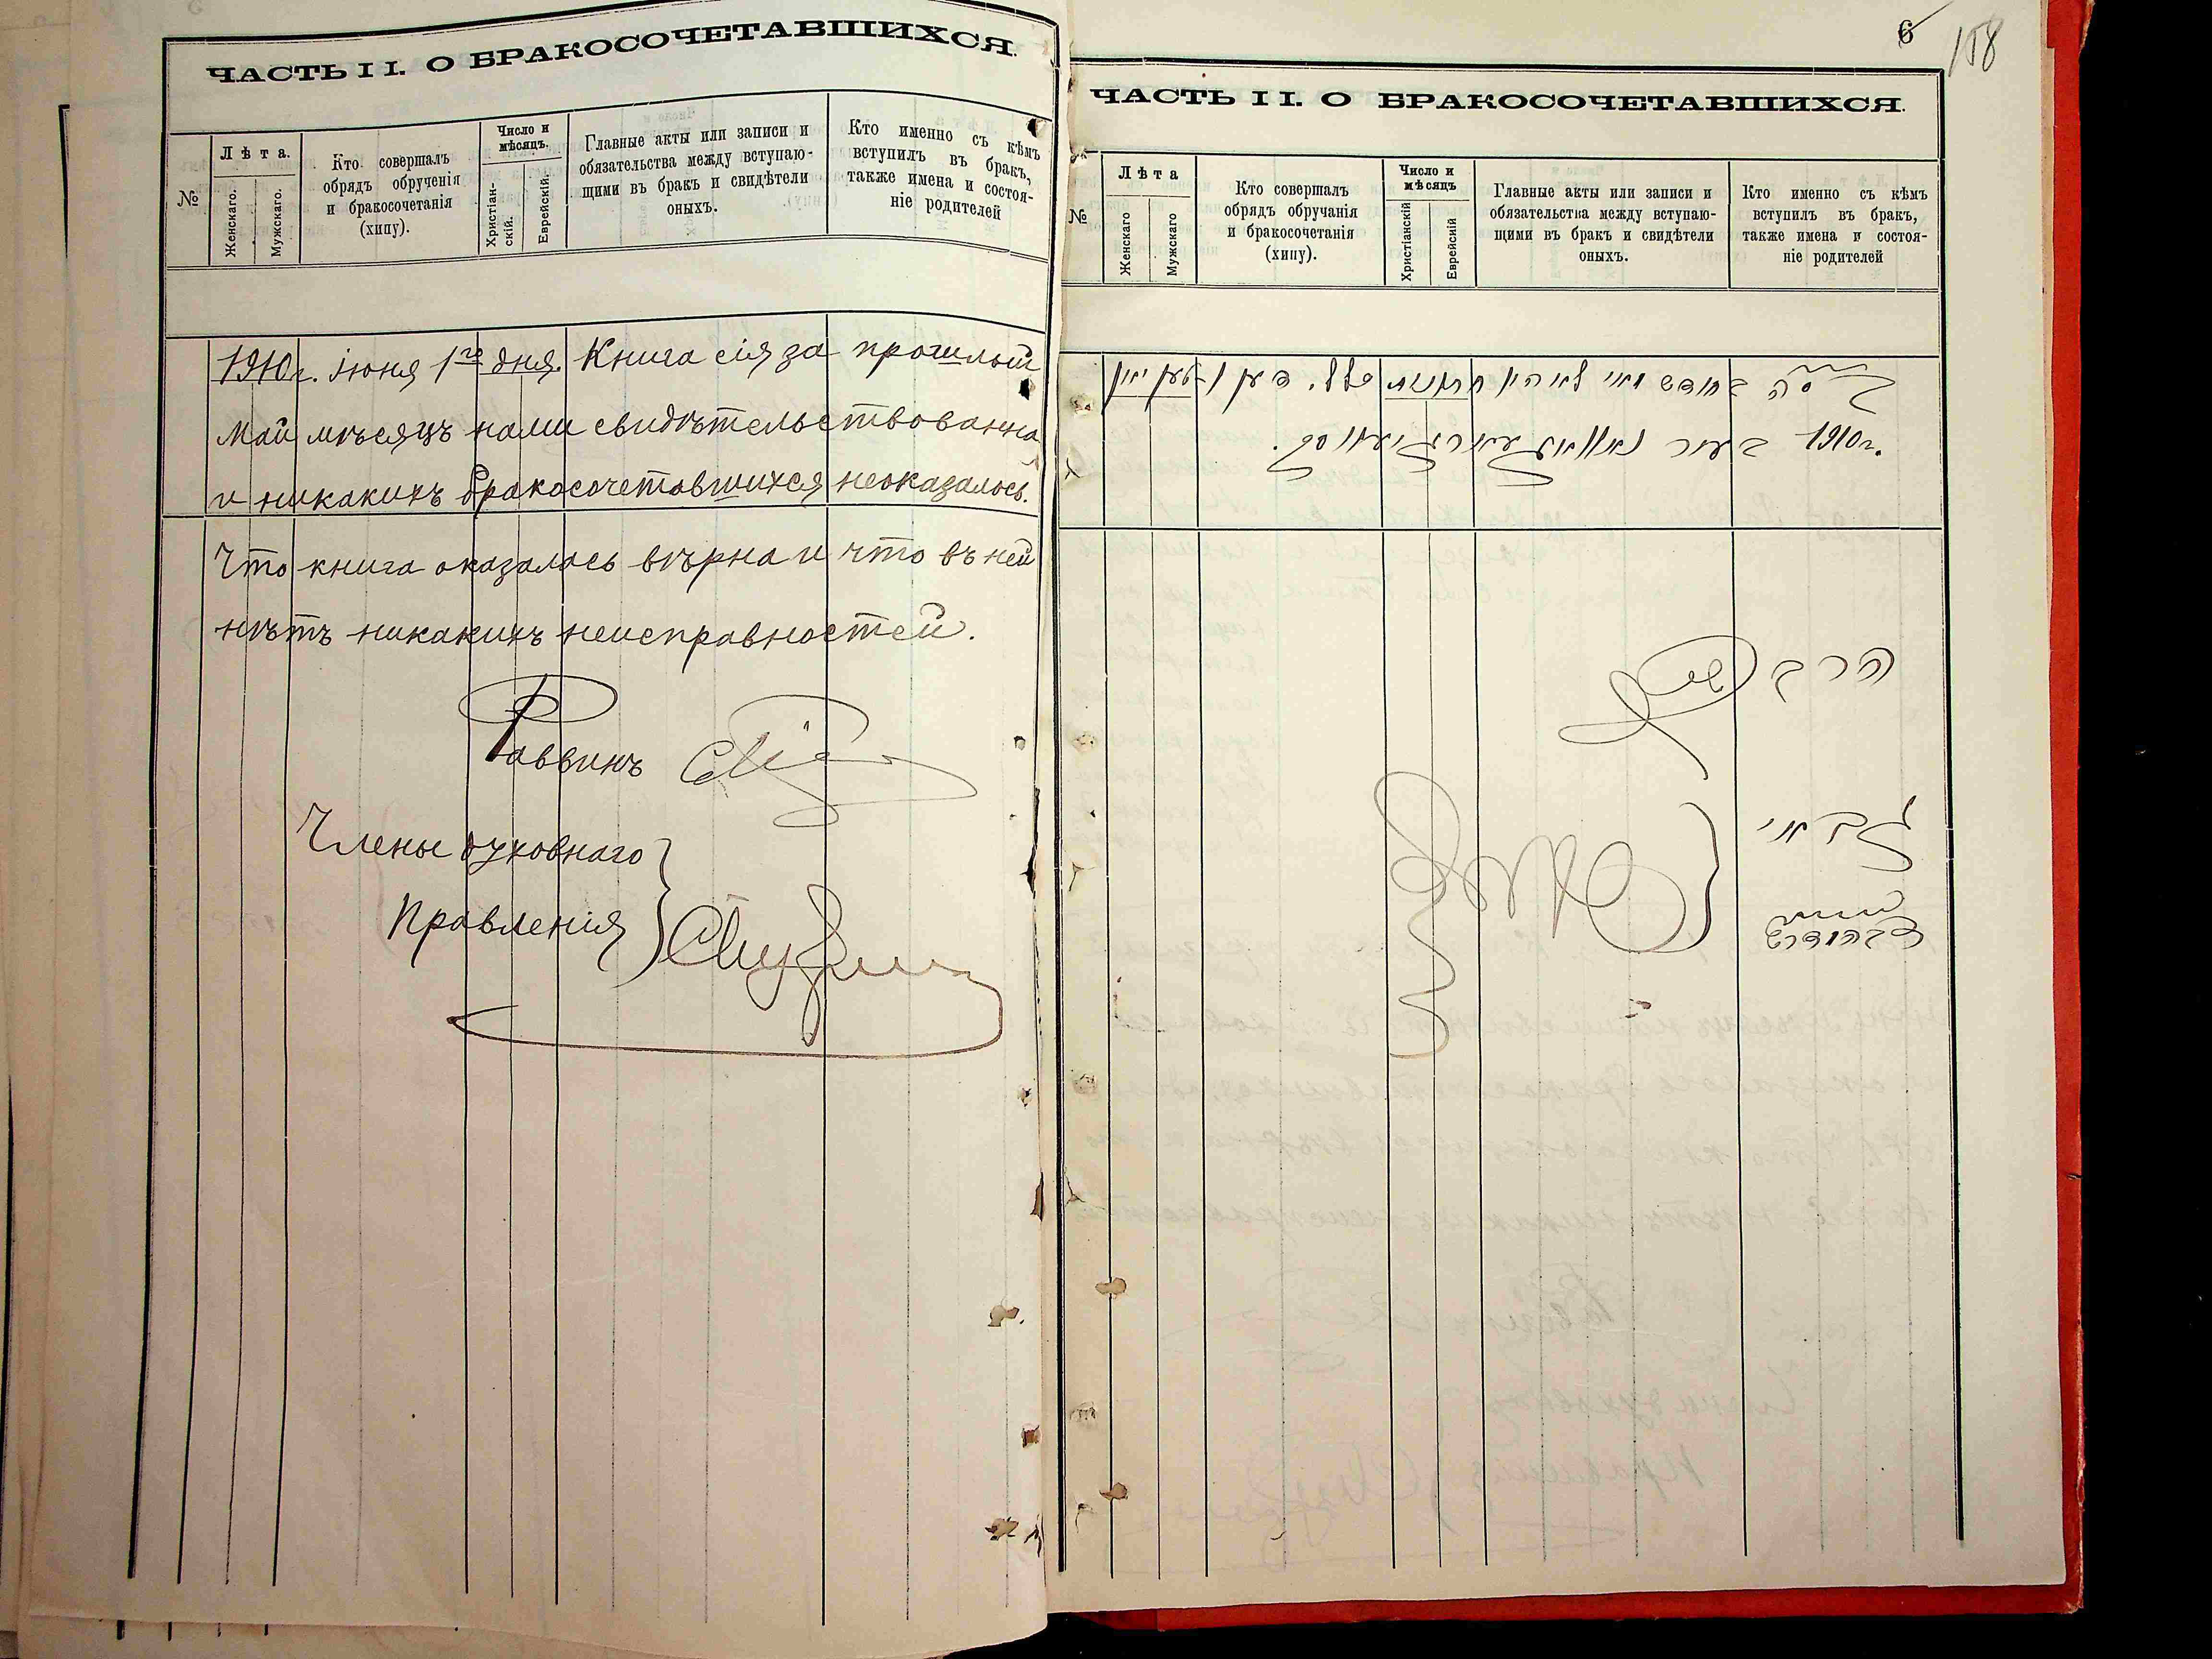 ЧАСТЬ II. О БРАКОСОЧЕТАВШИХСЯ.
№
Лѣта.
Женскаго.
Мужскаго.
Кто совершалъ
обрядъ обрученія
и бракосочетанія
(хипу).
Число и
мѣсяцъ.
Христіан-
скій.
Еврейскій.
Главные акты или записи и
обязательства между вступаю-
щими въ бракъ и свидѣтели
оныхъ.
Кто именно съ кѣмъ
вступилъ въ бракъ,
также имена и состоя-
ніе родителей
1910 г. Іюня 1го дня. Книга сія за прошлый
Май мѣсяцъ нами свидѣтельствованна
и никакихъ бракосочетовшихся неоказалось.
Что книга оказалась вѣрна и что въ ней
нѣтъ никакихъ неисправностей.
Раввинъ
Члены духовнаго
Правленія
6
158
ЧАСТЬ II. О БРАКОСОЧЕТАВШИХСЯ.
№
Лѣта
Женскаго
Мужскаго
Кто совершалъ
обрядъ обручанія
и бракосочетанія
(хипу).
Число и
мѣсяцъ
Христіанскій
Еврейскій
Главные акты или записи и
обязательства между вступаю-
щими въ бракъ и свидѣтели
оныхъ.
Кто именно съ кѣмъ
вступилъ въ бракъ,
также имена и состоя-
ніе родителей
1910 г.
הרב
גבאי